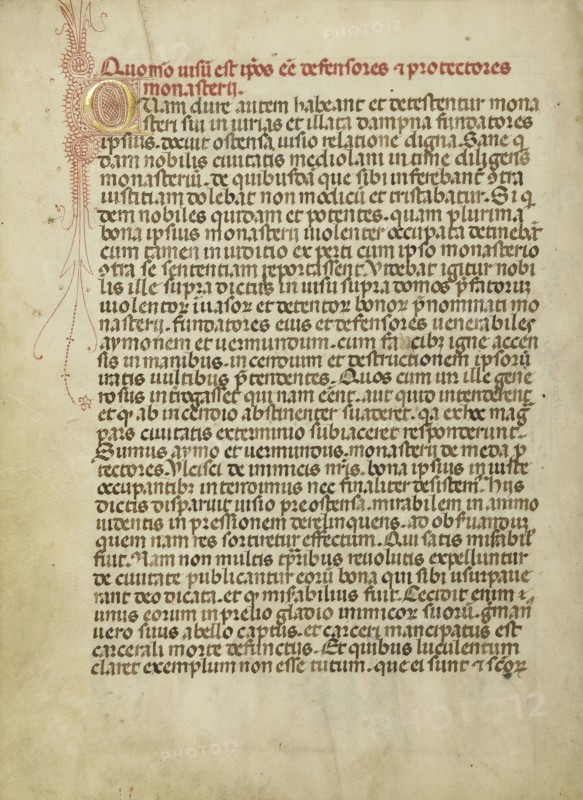 Quomo uisu est ipos ee defensores ⁊ protectores
monasterij.
Quam dure autem habeant et detestentur mona
sterii sui iniurias et illata dampna fundatores
ipsius. docuit ostensa uisio relatione digna. Sane q
dam nobilis ciuitatis mediolani intime diligens
monasteriū. de quibusdā que sibi inferebant ɔtra
iustitiam dolebat non modicū et tristabatur. Si q
dem nobiles quidam et potentes. quam plurima
bona ipsius monasterij uiolenter occupata detinebāt
cum tamen in iuditio experti cum ipso monasterio
ɔtra se sententiam reportassent. Videbat igitur nobi
lis ille supra dictus in uisu supra domos p̄fatorum
uiolentoꝝ iuasoꝝ et detentoꝝ bonoꝝ p̄nominati mo
nasterij. fundatores eius et defensores uenerabiles
aymonem et uermundum. cum facibꝫ igne accen
sis in manibus. incendium et destructionem ipsorū
iratis uultibus p̄tendentes. Quos cum uir ille gene
rosus introgasset qui nam eent. aut quid intenderent
et ꝙ ab incendio abstinenter suaderet. qa ex hoc mag
pars ciuitatis exterminio subiaceret responderunt.
Sumus aymo et uermundus. monasterij de meda p
tectores. Vlcisci de inimicis nr̄is. bona ipsius iniuste
occupantibꝫ intendimus nec finaliter desistem. Hijs
dictis disparuit uisio preostensa. mirabilem in animo
uidentis inpressionem derelinquens. ad obseruandum
quem nam res sortiretur effectum. Qui satis mirabil
fuit. Nam non multis tp̄ribus reuolutis expelluntur
de ciuitate publicantur eorū bona qui sibi usurpaue
rant deo dicata. et ꝙ mirabilius fuit. Cecidit enim
unus eorum in prelio gladio inimicoꝝ suorū. gman
uero suus a bello captus. et carceri mancipatus est
carcerali morte defunctus. Et quibus luculentum
claret exemplum non esse tutum. que ei sunt ⁊ scoꝝ
PHOTO12
PHOTO12
PHOTO12